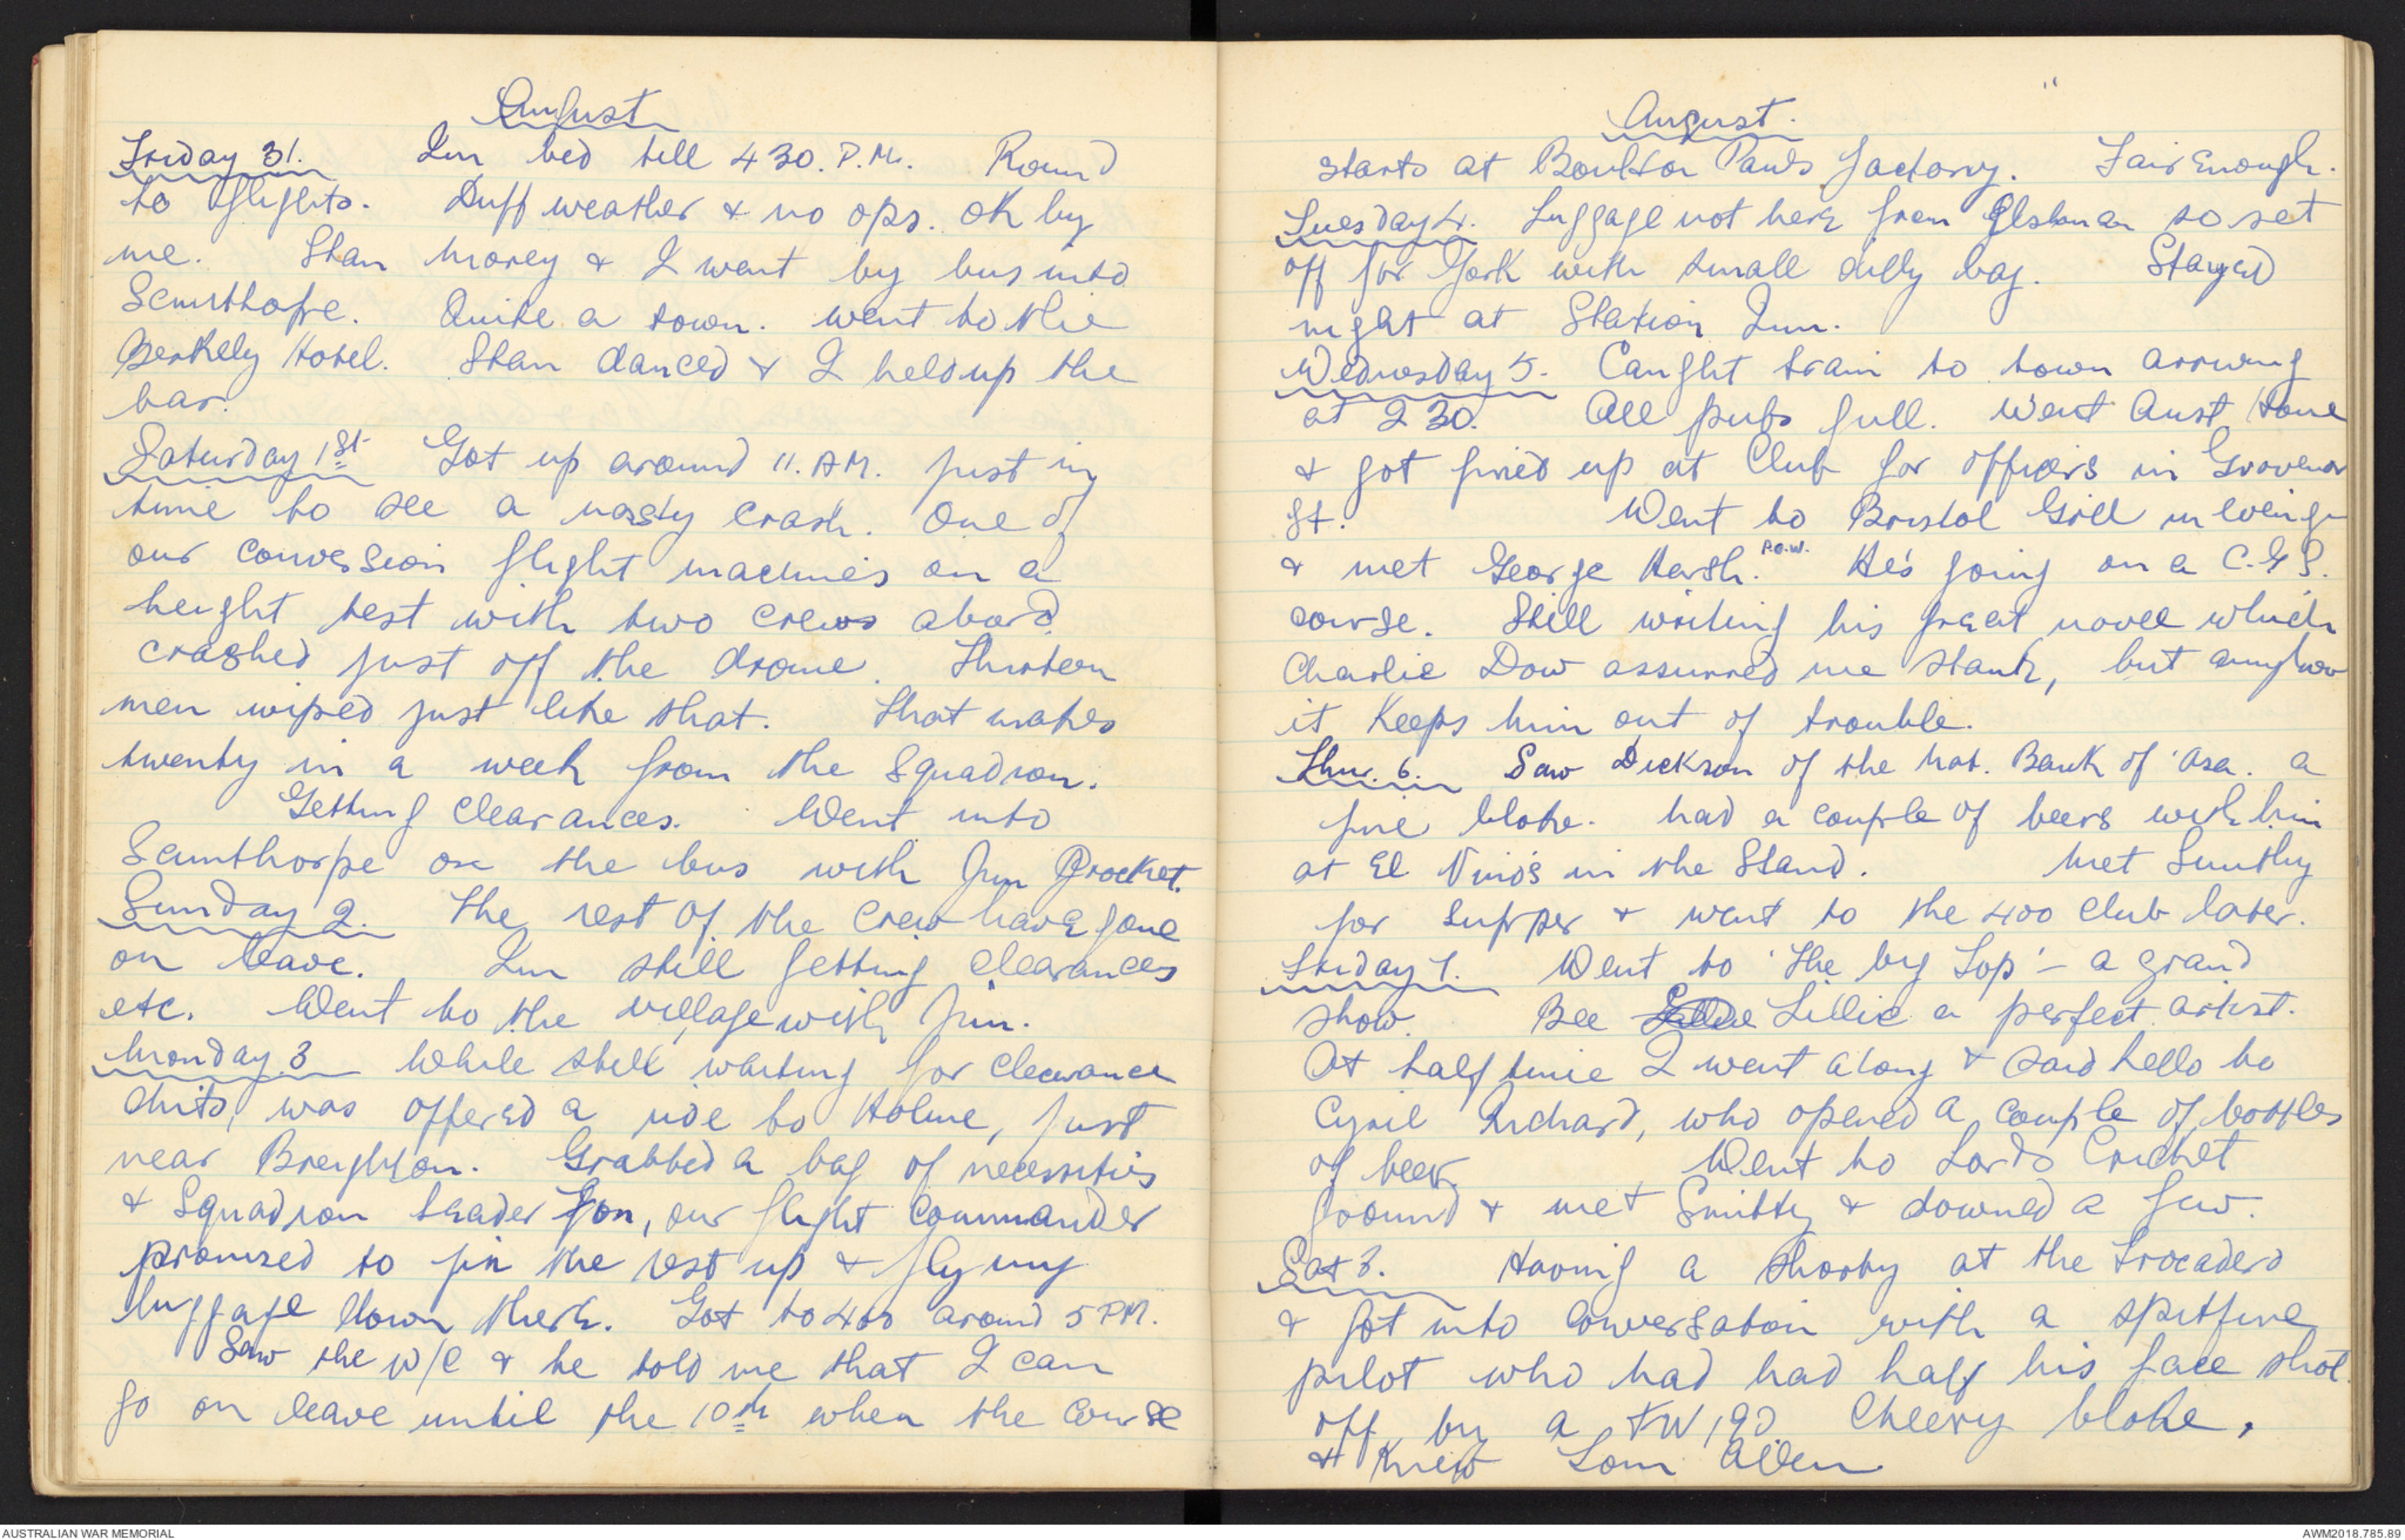 August
Friday 31. In bed till 430. P.M. Round
to flights. Duff weather & no ops. OK by
me. Stan Morey & I went by bus into
Scunthope. Quite a town. Went to the
Berkely Hotel. Stan danced & I held up the
bar.
Saturday 1st Got up around 11. AM. just in
time to see a nasty crash. One of
our conversion flight machines on a
height test with two crews aboard
crashed just off the drome. Thirteen
men wiped just like that. That makes
twenty in a week from the Squadron.
Getting clearances. Went into
Scunthorpe on the bus with Jim Brocket.
Sunday 2. The rest of the crew have gone
on leave. I'm still getting clearances
etc. Went to the village with Jim.
Monday 3 While still waiting for clearance
chits, was offered a ride to Holme, just
near Breighton. Grabbed a bag of necessities
& Squadron Leader Jon, our flight Commander
promised to fix the rest up & fly my
luggage down there. Got to 460 around 5 PM.
Saw the W/C & he told me that I can
go on leave until the 10th when the course
August.
starts at Boulton Pauls factory. Fair Enough.
Tuesday 4. Luggage not here from Elsham so set
off for York with small dilly bag. Stayed
night at Station Inn.
Wednesday 5. Caught train to town arriving
at 2 30. All pubs full. Went Aust House
& got fixed up at Club for officers in Grovenor
St. Went to Bristol Grill in evening
& met George Harsh. P.O.W. He's going on a C.G.S.
course. Still writing his great novel which
Charlie Dow assurred me stank, but anyhow
it keeps him out of trouble.
Thur. 6. Saw Dickson of the Nat. Bank of 'Asa. a
fine bloke. had a couple of beers with him
at El Vino's in the Stand. Met Smithy
for supper & went to the 400 Club later.
Friday 7. Went to 'The big Top' - a grand
show. Bee Lillie a perfect artist.
At half time I went along & said hello to
Cyril Richard, who opened a couple of bottles
of beer. Went to Lords Cricket
ground & met Smitty & downed a few.
Sat 8. Having a shorty at the Trocadero
& got into conversation with a spitfire
pilot who had had half his face shot
off by a FW 190 Cheery bloke,
& knew Tom Allen